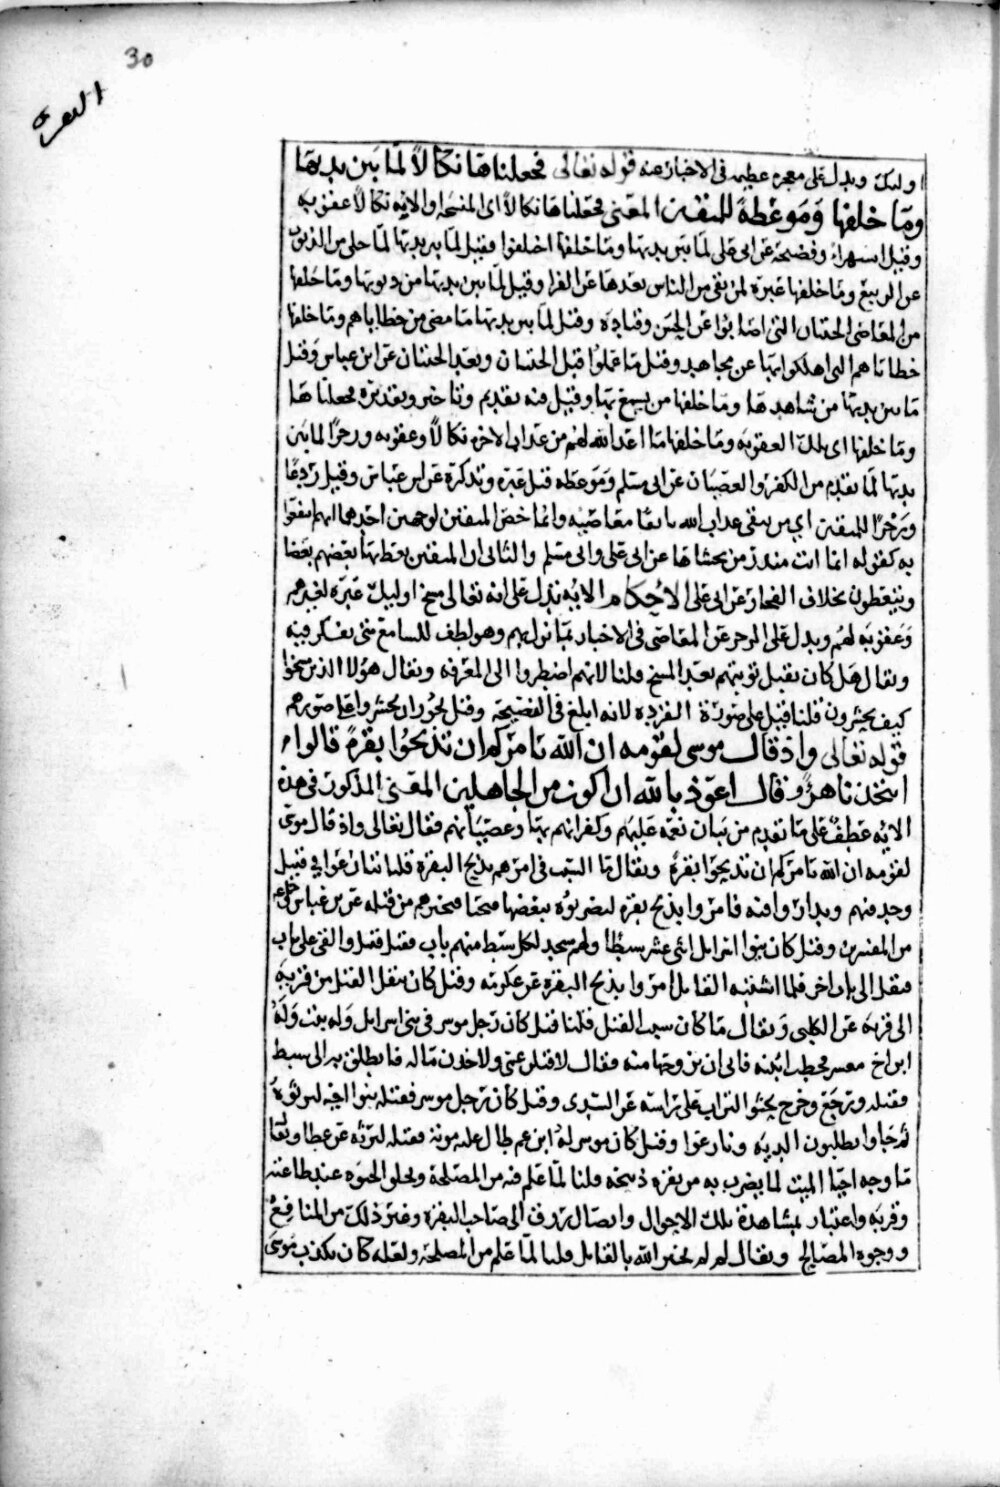 30
البقرة
اوليك ويدل على معجزه عظيمه في الاخبار عنه قوله تعالى فجعلناها نكالاً لما بين يديها
وما خلفها وموعظة للمتقين المعنى فجعلناها نكالاً اي المسخه او الايه نكالاً عقوبه
وقيل اشتهراً وفضيحة عن ابي على لما بين يديها وما خلفها اختلفوا فقيل لما بين يديها لما خلى من الذنوب
عن الربيع وما خلفها عبرة لمن بقى من الناس بعدها عن الفرا وقيل لما بين يديها من ذنوبها وما خلفها
من المعاصي الحيتان التي اصابوا عن الحسن وقتاده وقيل لما بين يديها ما مضى من خطاياهم وما خلفها
خطاياهم التي اهلكوا بها عن مجاهد وقيل ما عملوا قبل الحيتان وبعد الحيتان عن ابن عباس وقيل
ما بين يديها من شاهدها وما خلفها من يسمع بها وقيل فيه تقديم وتاخير وتقديره فجعلناها
وما خلفها اي تلك العقوبه وما خلفها مما اعد الله لهم من عذاب الاخره نكالاً وعقوبه وزجراً لما بين
يديها لما تقدم من الكفر والعصيان عن ابي مسلم وموعظه قيل عبرة وتذكرة عن ابن عباس وقيل ردعاً
وزجراً للمتقين اي من يتقى عذاب الله باتقا معاصيه وانما خص المتقين لوجهين احدهما انهم انتفعوا
به كقوله انما انت منذر من يخشاها عن ابي على وابي مسلم والثاني ان المتقين يعظ بها بعضهم بعضا
ويتعظون بخلاف الفجار عن ابي على الاحكام الايه تدل على انه تعالى مسخ اوليك عبرة لغيرهم
وعقوبه لهم ويدل على الزجر عن المعاصي في الاخبار بما نزل بهم وهو لطف للسامع متى تفكر فيه
ويقال هل كان تقبل توبتهم بعد المسخ قلنا لا لانهم اضطروا الى المعرفه ويقال هؤلا الذين مسخوا
كيف يحشرون قلنا قيل على صورة القرده لانه ابلغ في الفضيحة وقيل يجوز ان يحشروا على صورهم
قوله تعالى واذ قال موسى لقومه ان الله يامركم ان تذبحوا بقرة قالوا
اتتخذنا هزوا قال اعوذ بالله ان اكون من الجاهلين المعنى المذكور في هذه
الايه عطف على ما تقدم من بيان نعمه عليهم وكفرانهم بها وعصيانهم فقال تعالى واذ قال موسى
لقومه ان الله يامركم ان تذبحوا بقرة ويقال ما السبب في امرهم بذبح البقره قلنا تنازعوا في قتيل
وجد فيهم وتداروا فيه فامروا بذبح بقره ليضربوه ببعضها فيحيا فيخبرهم من قتله عن ابن عباس وجماعه
من المفسرين وقيل كان بنوا اسرايل اثنى عشر سبطاً ولهم مسجد لكل سبط منهم باب فقتل قتيل والقى على باب
فنقل الى باب اخر فلما اشتبه القاتل امروا بذبح البقره عن عكرمه وقيل كان ينقل القتيل من قريه
الى قريه عن الكلبي ويقال ما كان سبب القتل قلنا قيل كان رجل موسر في بني اسرايل وله بنت وله
ابن اخ معسر فخطب ابنته فابى ان يزوجها منه فقال لاقتلن عمي ولاخذن ماله فانطلق به الى سبط
فقتله ورجع وخرج يحثو التراب على راسه عن السدى وقيل كان رجل موسر فقتله بنوا اخيه ليرثوه
ثم جاوا يطلبون الديه وتنازعوا وقيل كان موسر له ابن عم طال عليه موته فقتله ليرثه عن عطا ويقال
ما وجه احيا الميت لما يضرب به من بقره ذبيحه قلنا لما علم فيه من المصلحة ويخلق الحيوه عند طاعته
وقربه واعتبار بمشاهدة تلك الاحوال وايصال رزق الى صاحب البقره وغير ذلك من المنافع
ووجوه المصالح ويقال لم لم يخبر الله بالقاتل قلنا لما علم من المصلحه ولعله كان يكذب موسى